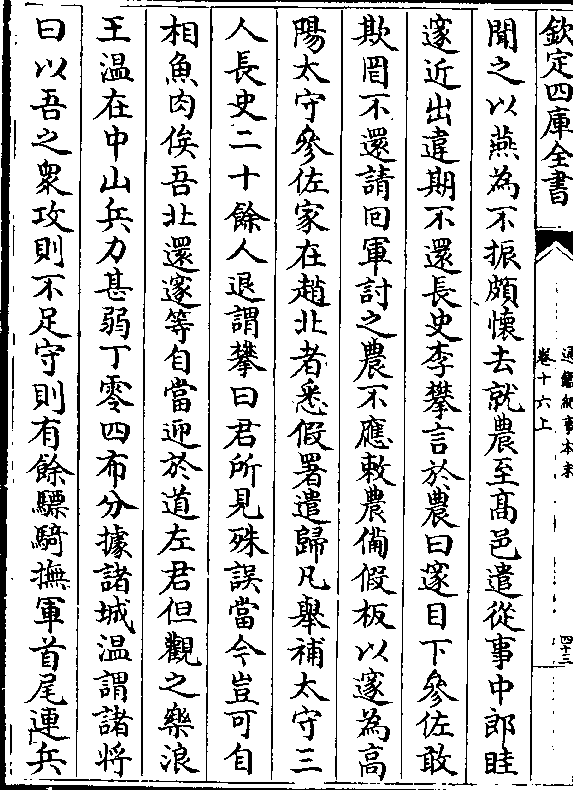 欽定四庫全書
通鑑紀事本末
卷十六上
四十三
聞之以燕為不振頗懷去就農至高邑遣從事中郎眭
邃近出違期不還長史李攀言於農曰邃目下參佐敢
欺罔不還請回軍討之農不應敕農備假板以邃為高
陽太守參佐家在趙北者悉假署遣歸凡舉補太守三
人長史二十餘人退謂攀曰君所見殊誤當今豈可自
相魚肉俟吾北還邃等自當迎於道左君但觀之樂浪
王溫在中山兵力甚弱丁零四布分據諸城溫謂諸將
曰以吾之衆攻則不足守則有餘驃騎撫軍首尾連兵